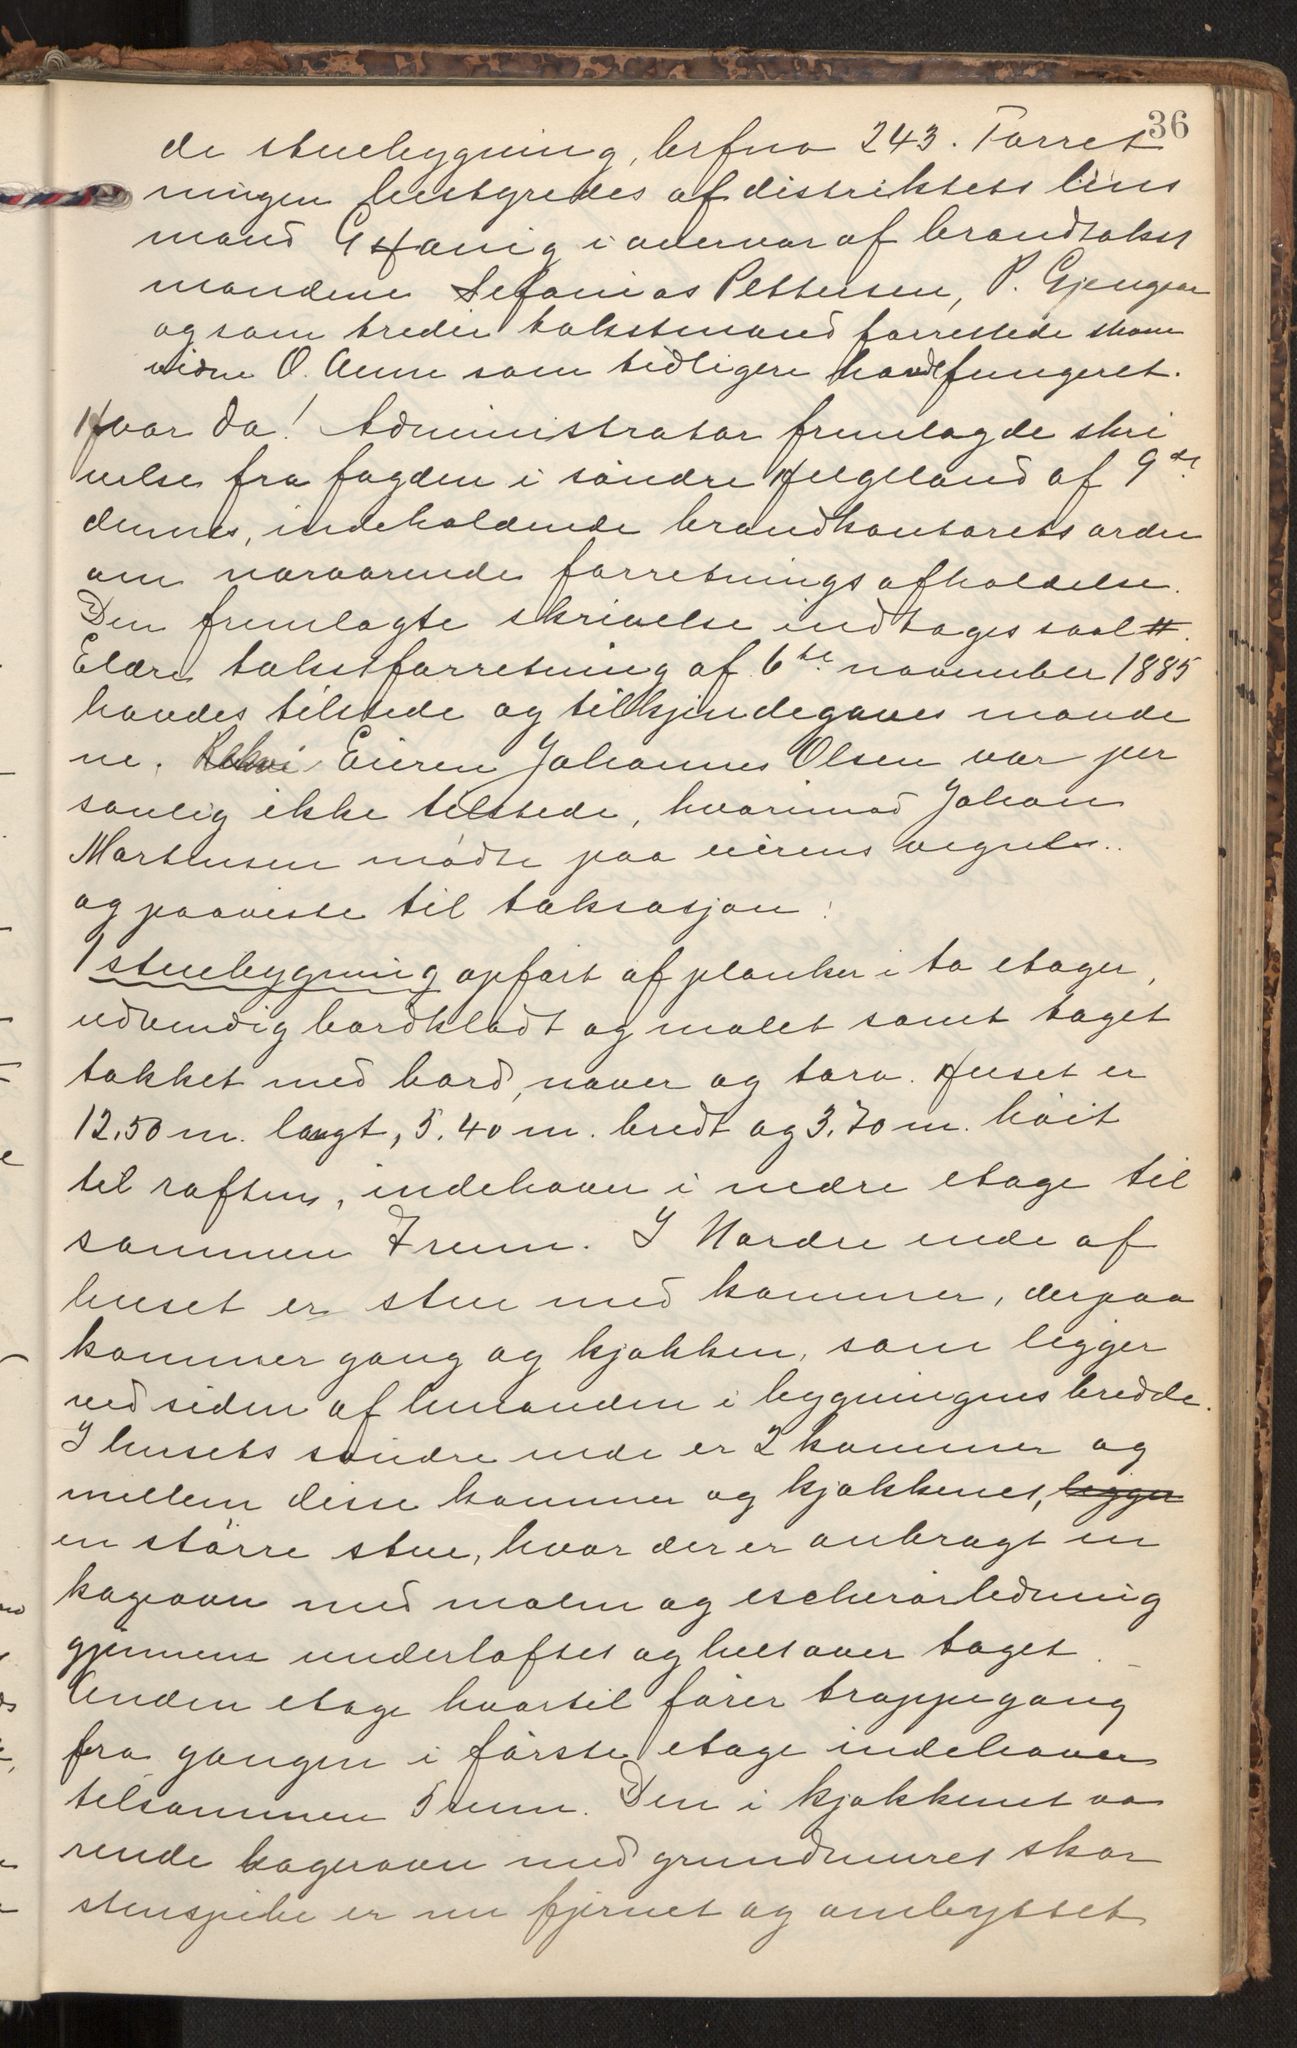 36
de stuebygning, brfno 243. Forret
ningen bestyredes af distriktets lens
mand G Hanig i overvær af brandtakst
mændene Sefanias Pettersen, P. Gjengaar
og som tredie takstmand forrettede skam
vidne O. Aune som tidligere havde fungeret.
Hvor da! Administrator fremlagde skri
velse fra fogden i søndre Helgeland af 9de
dennes, indeholdende brandkontorets ordre
om nærværende forretnings afholdelse.
Den fremlagte skrivelse indtages saal #.
Eldre takstforretning af 6te november 1885
havdes tilstede og tilkjendegaves mænde
ne. Eieren Johannes Olsen var per
sonlig ikke tilstede, hvorimod Johan
Martensen mødte paa eierens vegne..
og paaviste til taksasjon:
1 stuebygning opført af planker i to etager,
udvendig bordklædt og malet samt taget
tækket med bord, næver og torv. Huset er
12.50 m. langt, 5.40 m. bredt og 3.70 m. høit
til raften, indehaver i nedre etage til
sammen 7 rum. I Nordre ende af
huset er stue med kammer, derpaa
kammer gang og kjøkken, som ligger
ved siden af hinanden i bygningens bredde.
I husets søndre ende er 2 kammer og
mellem disse kammer og kjøkkenet, ligger
en større stue, hvor der er anbragt en
kageovn med malm og escherørledning
gjennem underloftet og helt over taget.
Anden etage hvortil fører trappegang
fra gangen i første etage indehaver
tilsammen 5 rum. Den i kjøkkenet væ
rende bageovn med grundmuret skor
stenspibe er nu fjernet og ombyttet